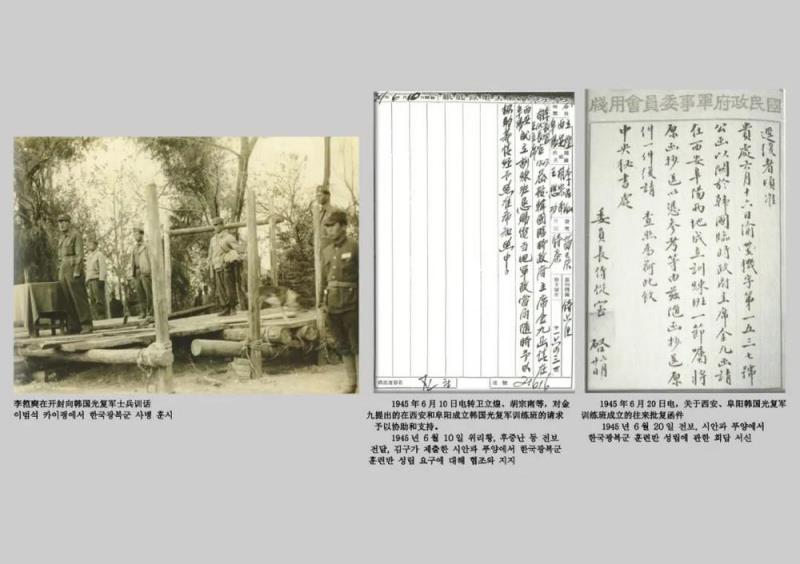 李范奭在开封向韩国光复军士兵训话
이범석 카이펑에서 한국광복군 사병 훈시
韓國臨時政府主席金九函請在
西安成立訓練班懇賜電當地軍政當局隨時予以
協助等情經予照准希知照中
1945 年 6 月 10 日电转卫立煌、胡宗南等，对金
九提出的在西安和阜阳成立韩国光复军训练班的请求
予以协助和支持。
1945 년 6 월 10 일 위리황, 후중난 등 전보
전달, 김구가 제출한 시안과 푸양에서 한국광복군
훈련반 성립 요구에 대해 협조와 지지
國民政府軍事委員會用牋
逕復者頃准
貴處六月十六日渝機字第一五三七號
公函以關於韓國臨時政府主席金九函請
在西安阜陽兩地成立訓練班一節囑將
原函抄送以憑參考等由茲隨函抄送原
件一件復請 查照為荷此致
中央秘書處
委員長侍從室 啓
1945 年 6 月 20 日电，关于西安、阜阳韩国光复军
训练班成立的往来批复函件
1945 년 6 월 20 일 전보, 시안과 푸양에서
한국광복군 훈련반 성립에 관한 회답 서신